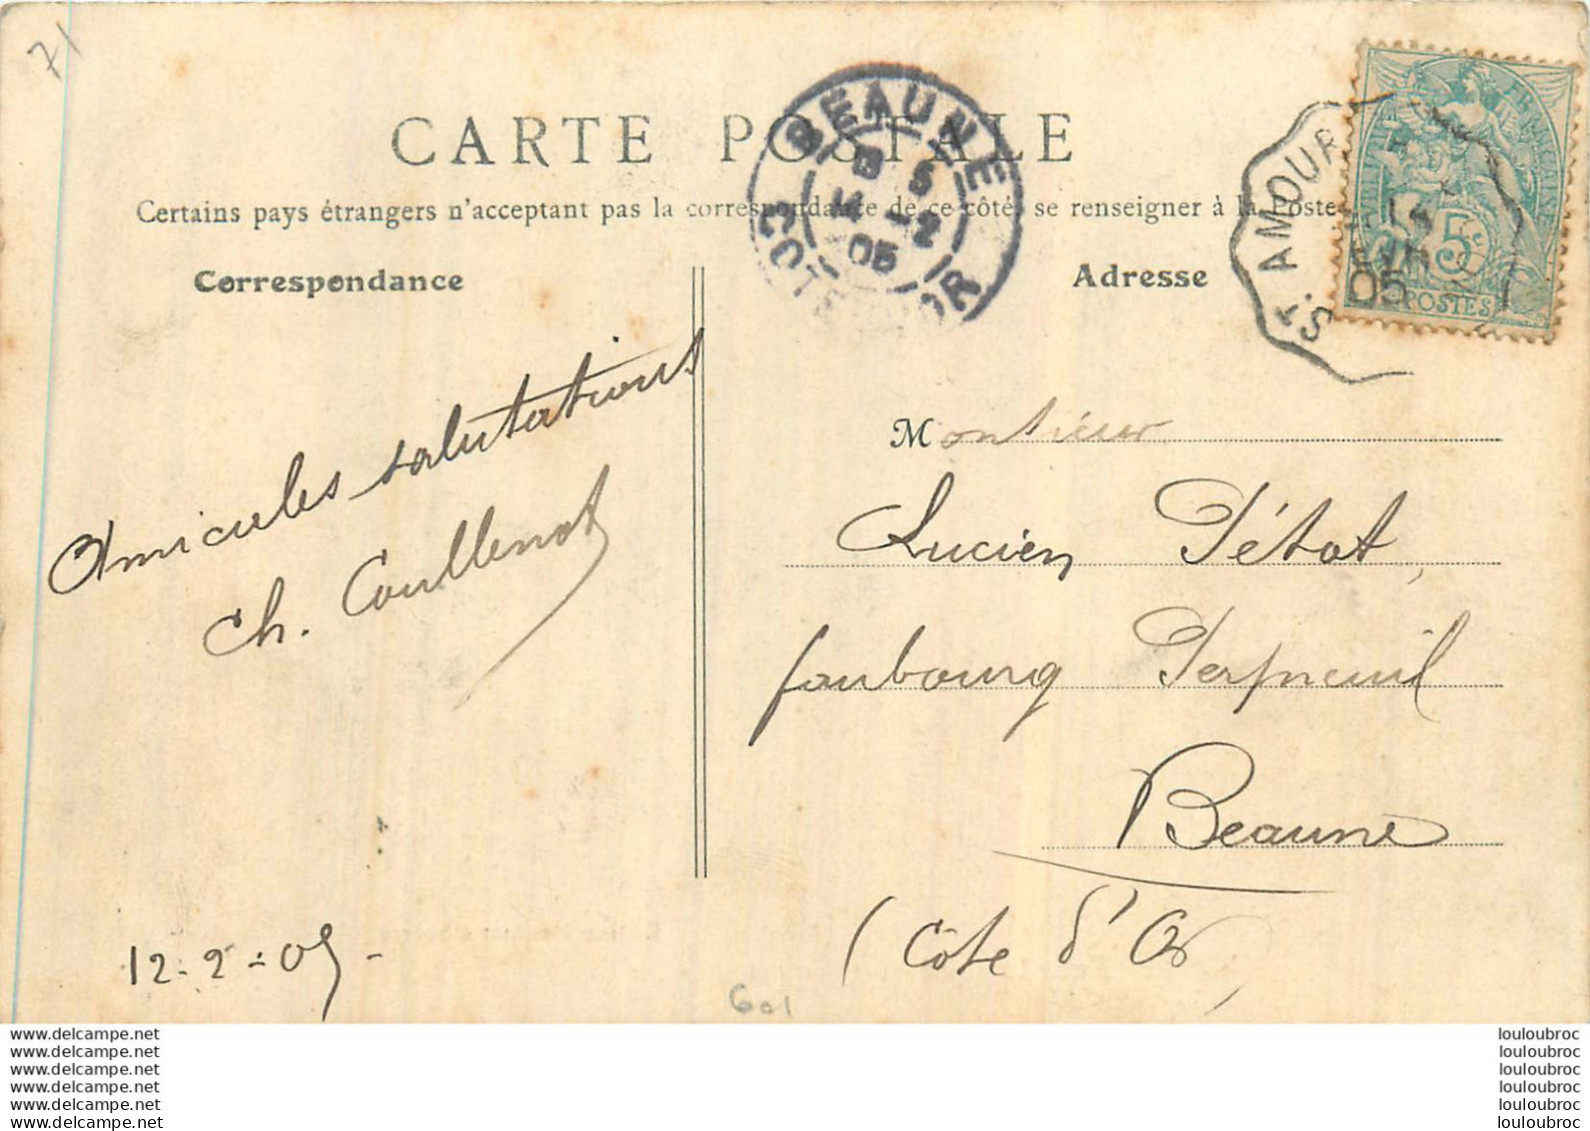 71
CARTE POSTALE
Certains pays étrangers n'acceptent pas la correspondance de ce côté, se renseigner à la Poste
Correspondance
Adresse
BEAUNE
COTE D'OR
05
ST AMOUR
14
05
RÉPUBLIQUE FRANÇAISE
5c
POSTES
Amicales salutations
Ch. Coullenot
12-2-05-
Monsieur
Lucien Pétot,
faubourg Perpreuil
Beaune
(Côte d'Or)
601
www.delcampe.net
www.delcampe.net
www.delcampe.net
www.delcampe.net
www.delcampe.net
www.delcampe.net
louloubroc
louloubroc
louloubroc
louloubroc
louloubroc
louloubroc